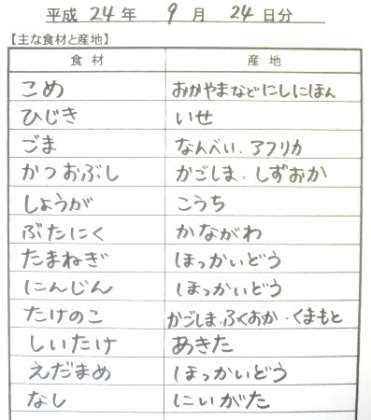 平成 24 年 9 月 24 日分
【主な食材と産地】
食材 産地
こめ おかやまなどにしにほん
ひじき いせ
ごま なんべい.アフリカ
かつおぶし かごしま.しずおか
しょうが こうち
ぶたにく かながわ
たまねぎ ほっかいどう
にんじん ほっかいどう
たけのこ かごしま.ふくおか.くまもと
しいたけ あきた
えだまめ ほっかいどう
なし にいがた